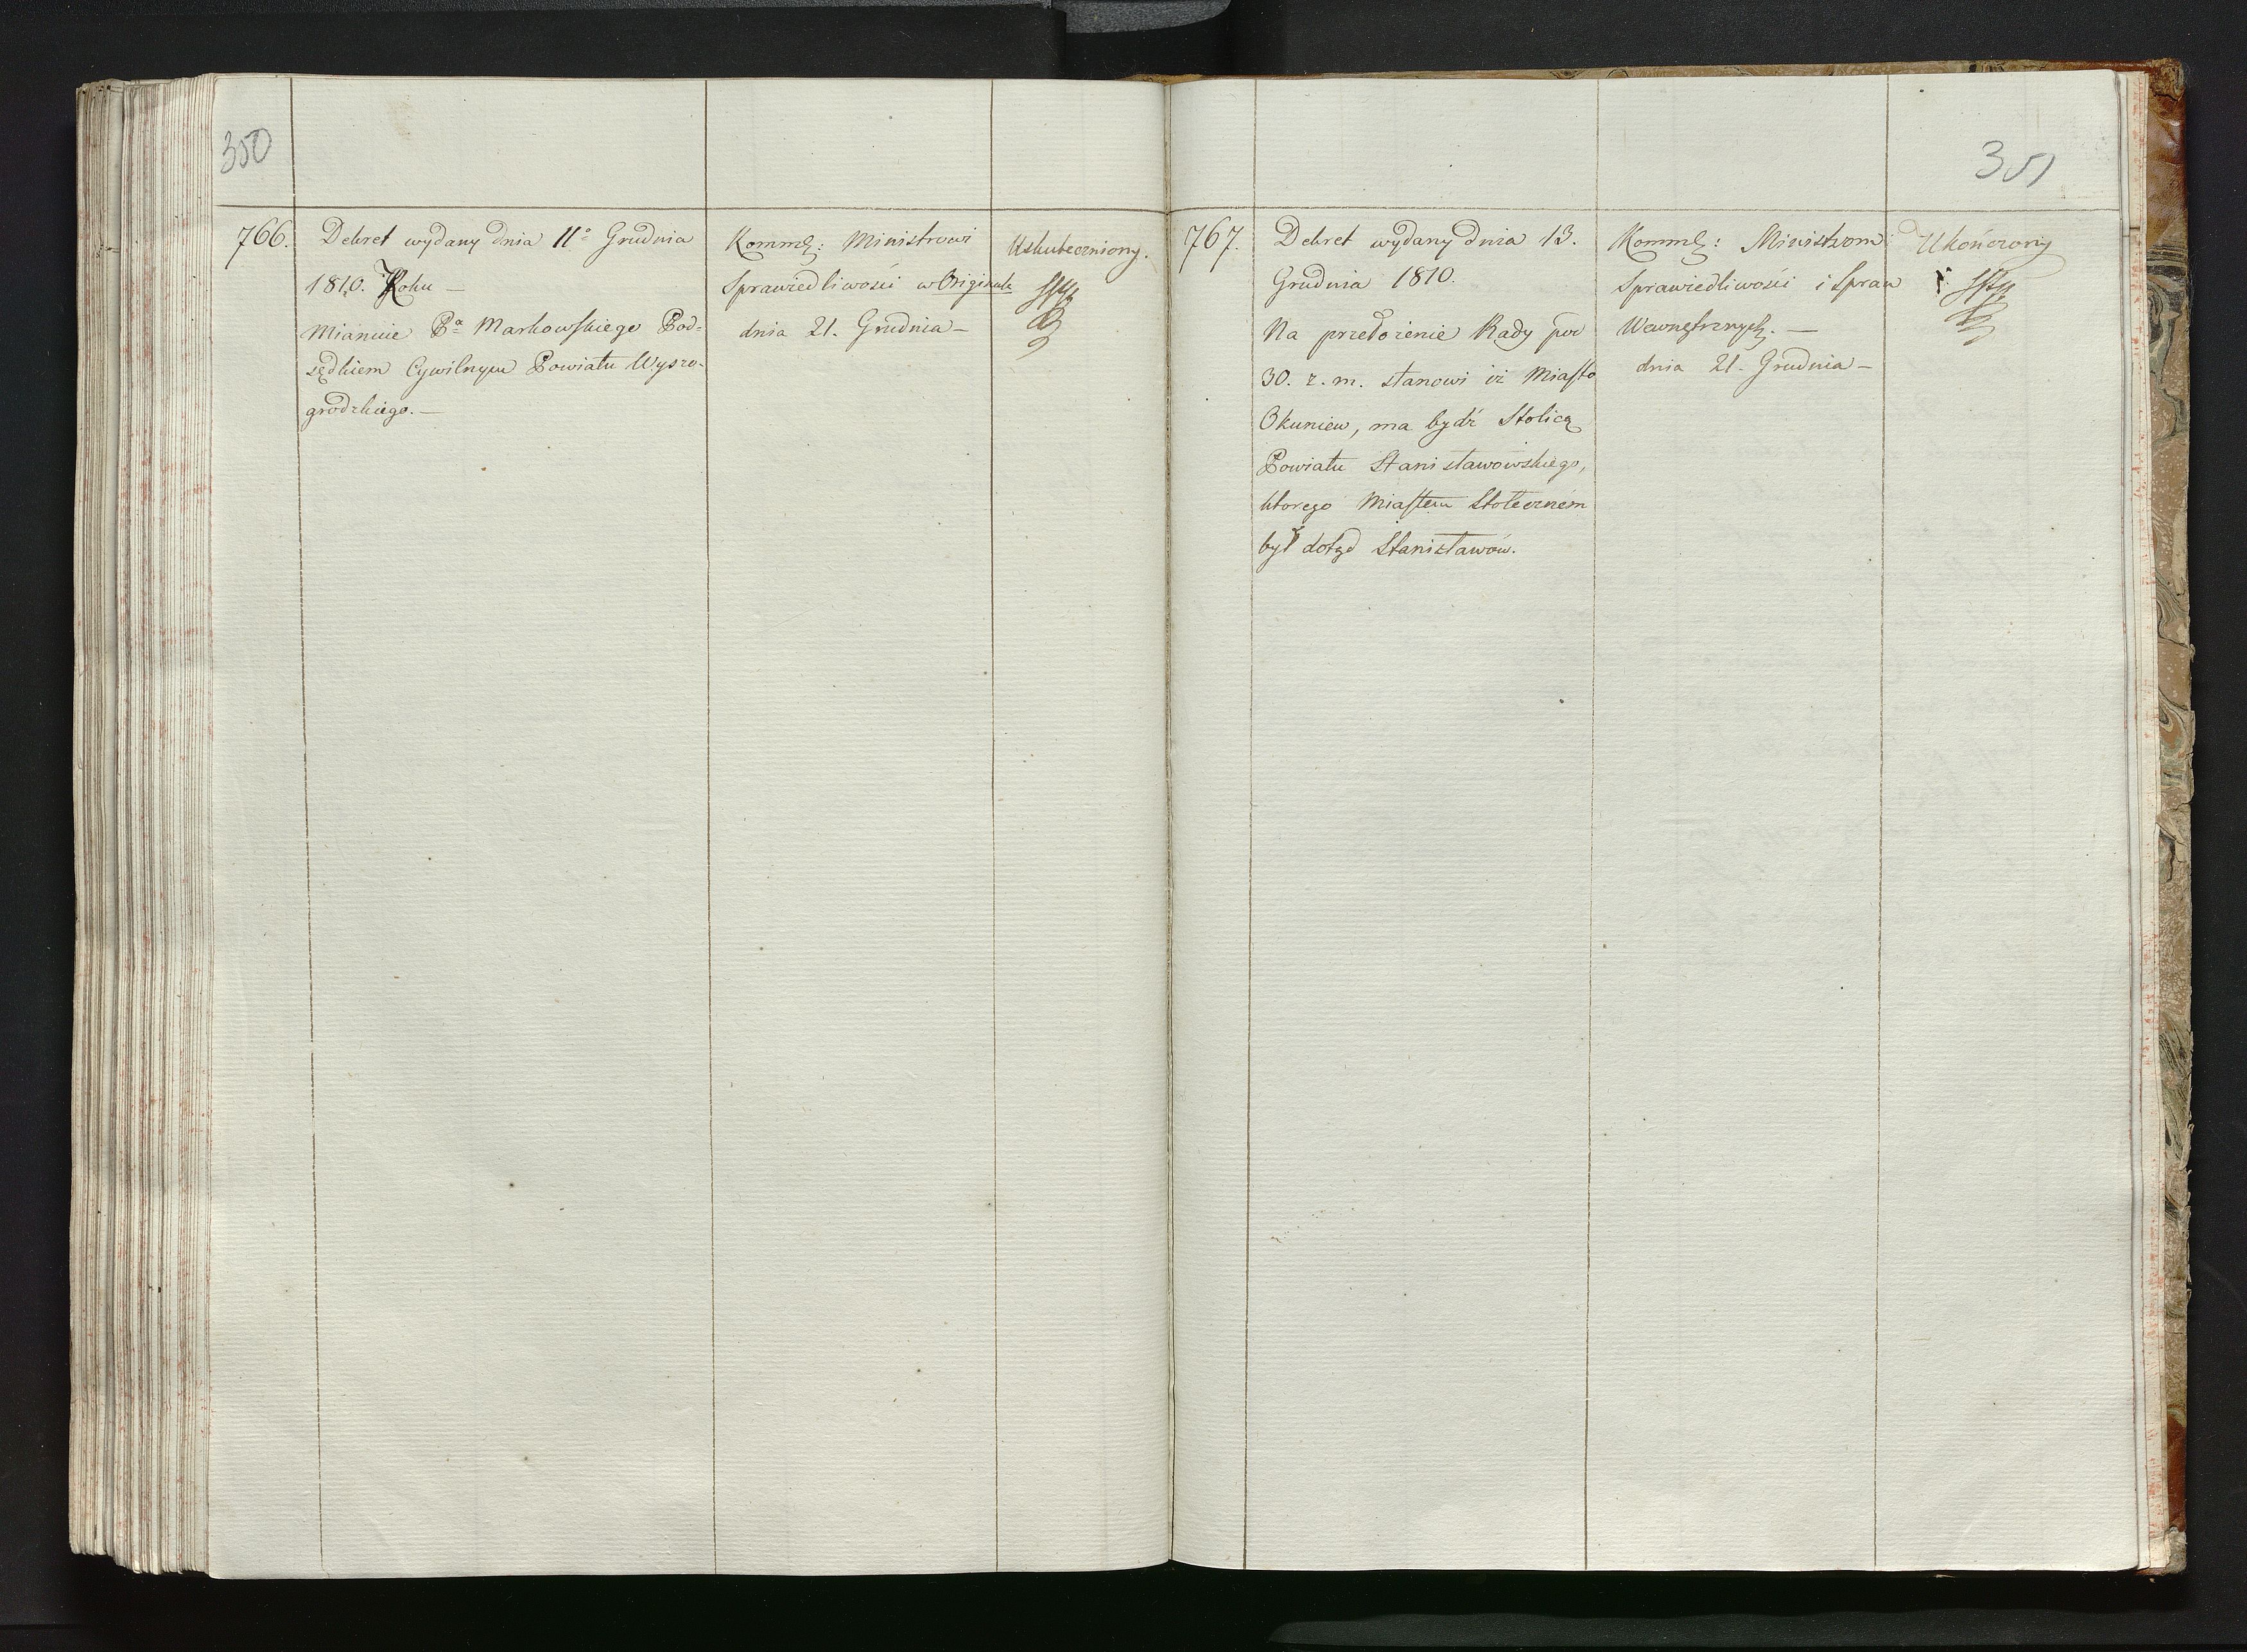 350
766.
Dekret wydany dnia 11° Grudnia
1810. Roku —
Mianuie Pª Markowskiego Pod=
sędkiem Cywilnym Powiatu Wyszo-
grodzkiego. —
Ministrowi
Sprawiedliwości w Originale
dnia 21. Grudnia —
Uskuteczniony.
351
767.
Dekret wydany dnia 13.
Grudnia 1810.
Na przełożenie Rady pod
30. z. m. stanowi iż Miasto
Okuniew, ma bydź Stolicą
Powiatu Stanisławowskiego,
którego Miastem Stołecznem
był dotąd Stanisławów.
Ministrom
Sprawiedliwości i Spraw
Wewnętrznych. —
dnia 21. Grudnia —
Ukończony